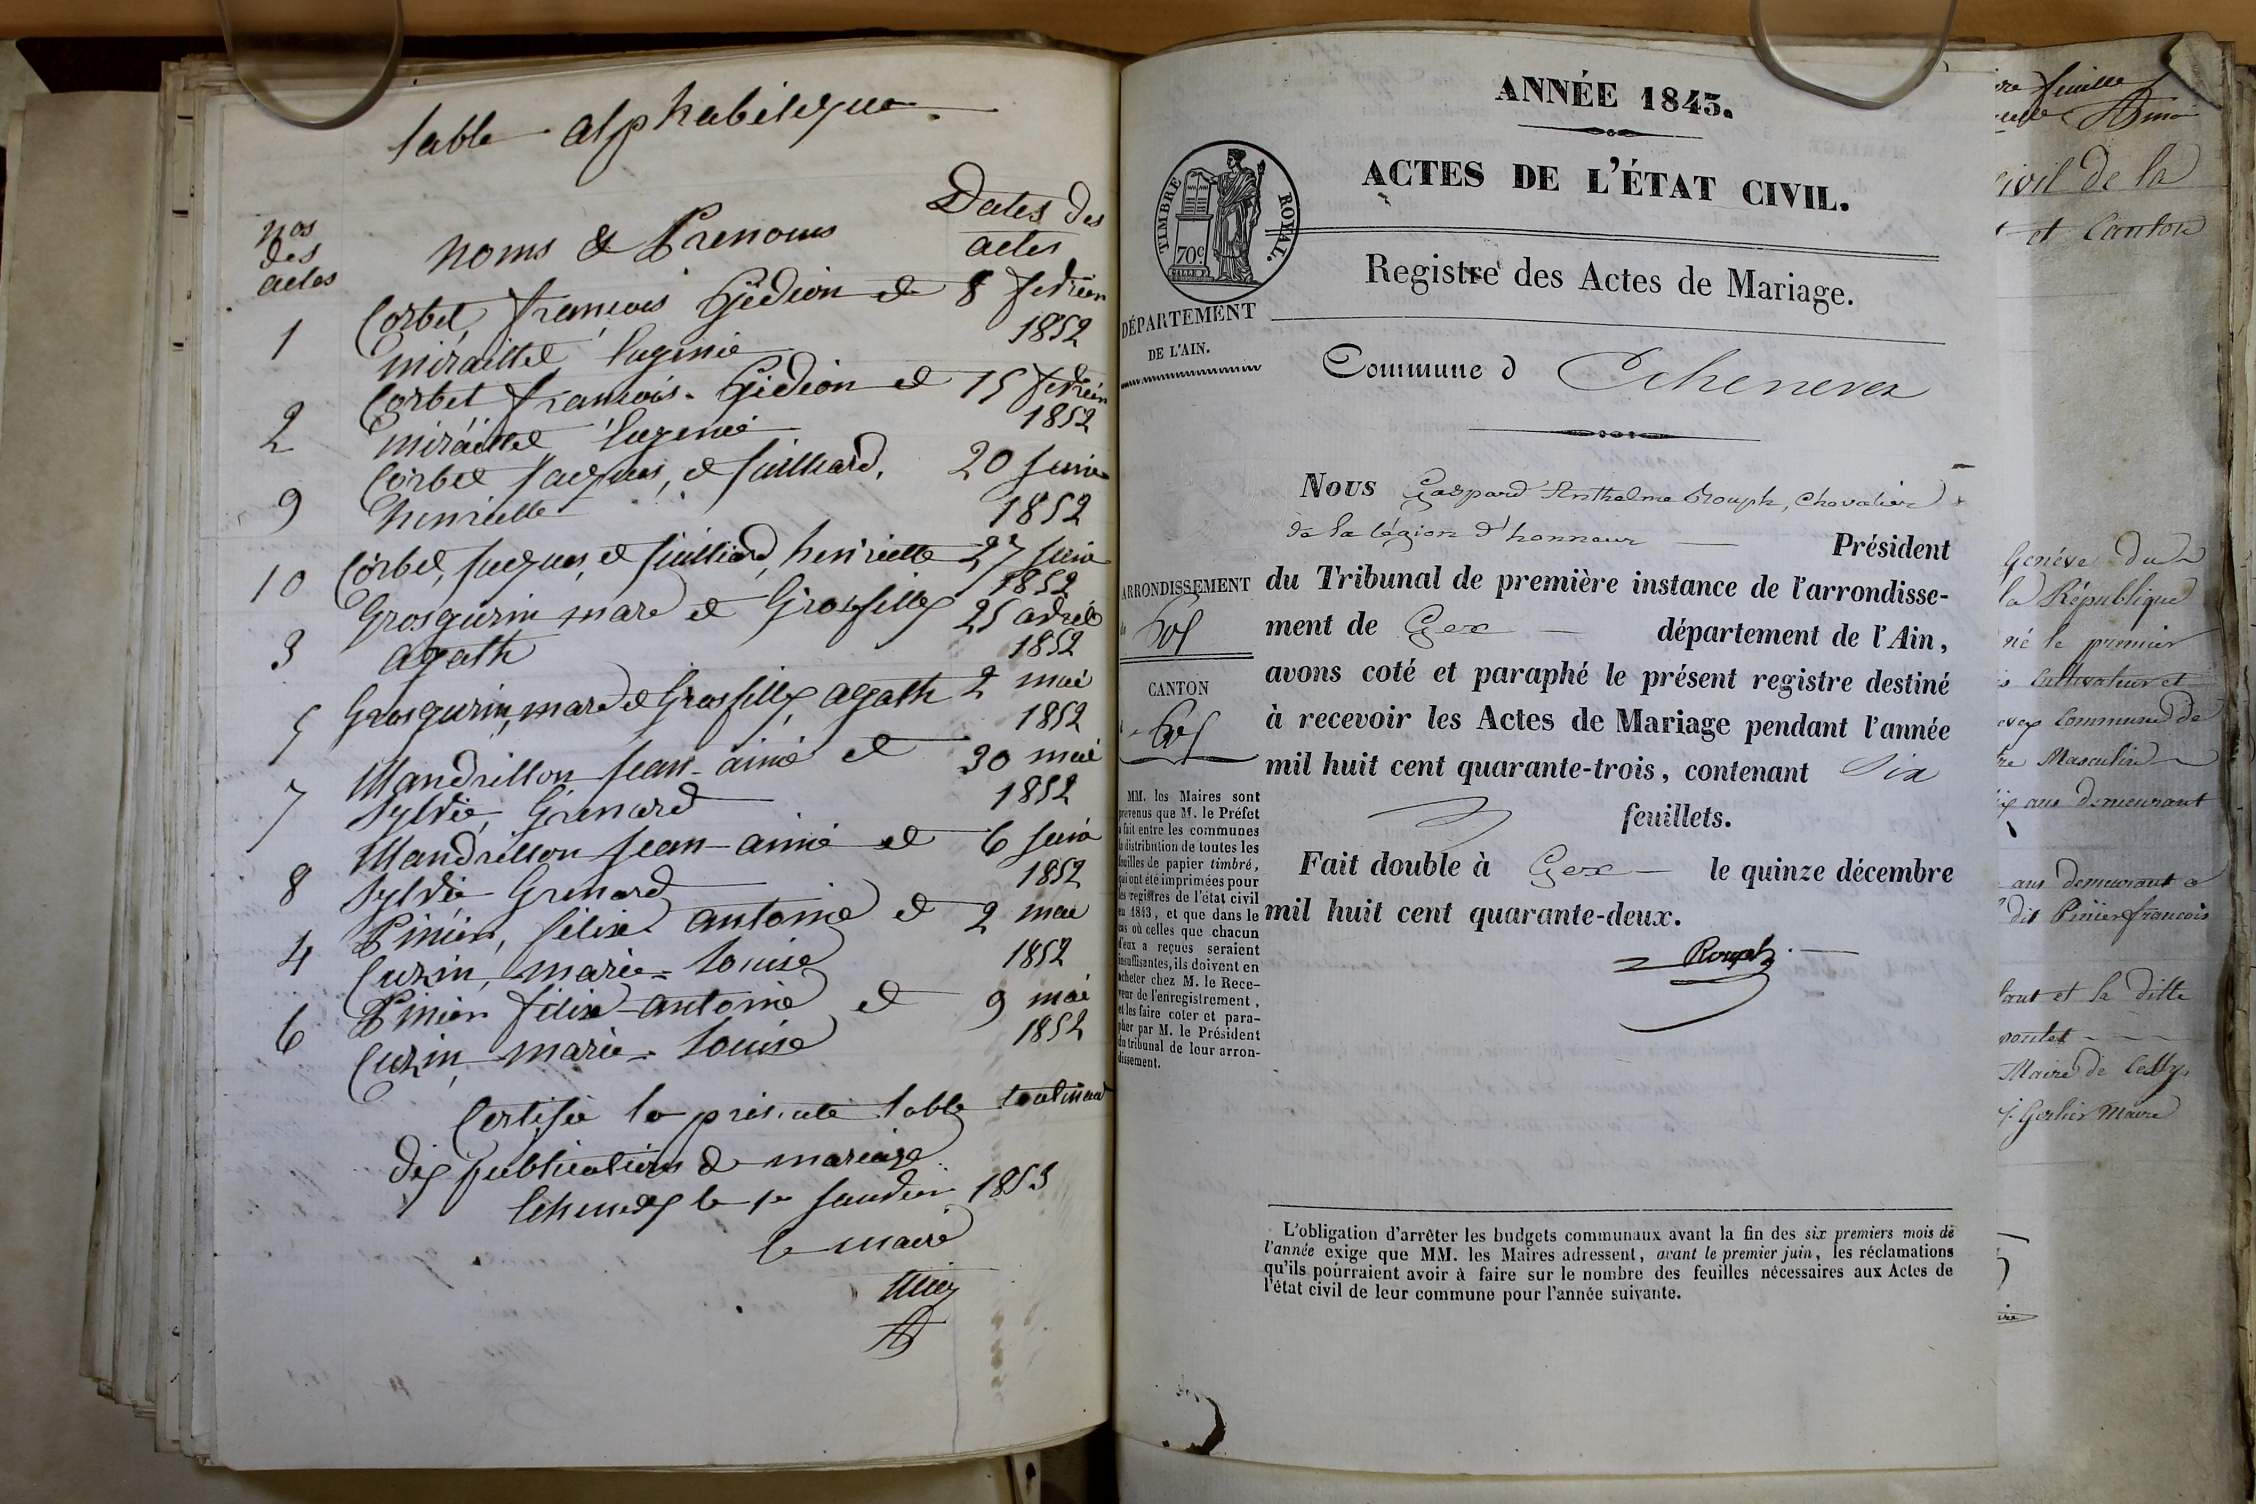 table alphabétique
nos
des
actes
noms & Prenoms
Dates des
actes
1 Corbet, françois Gédéon et 8 fevrier
miraillet Eugenie 1852
2 Corbet françois Gédéon et 15 fevrier
miraillet Eugenie 1852
9 Corbet Jacques, et Juilliard, 20 Juin
henriette 1852
10 Corbet, Jacques, et Juilliard, henriette 27 Juin
1852
3 Grosgurin marc et Grosfilley 25 avril
agath 1852
5 Grosgurin, marc et Grosfilley agath 2 mai
1852
7 Mandrillon Jean-aimé et 30 mai
Sylvie, Grenard 1852
8 Mandrillon Jean-aimé et 6 Juin
Sylvie Grenard 1852
4 Pinier, félix antoine et 2 mai
Curzin, marie-Louise 1852
6 Pinier félix-antoine et 9 mai
Curzin, marie-Louise 1852
Certifié la présente table contenant
dix publications de mariage
Echenevex le 1er Janvier 1853
le maire
ANNÉE 1843.
ACTES DE L'ÉTAT CIVIL.
TIMBRE ROYAL.
70c.
Registre des Actes de Mariage.
DÉPARTEMENT
DE L'AIN.
Commune d Echenevex
Nous Gaspard Anthelme Rouph, Chevalier
de la légion d'honneur — Président
du Tribunal de première instance de l'arrondisse-
ment de Gex — département de l'Ain,
avons coté et paraphé le présent registre destiné
à recevoir les Actes de Mariage pendant l'année
mil huit cent quarante-trois, contenant Six
feuillets.
Fait double à Gex — le quinze décembre
mil huit cent quarante-deux.
Rouph
ARRONDISSEMENT
de Gex
CANTON
de Gex
MM. les Maires sont
prevenus que M. le Préfet
a fait entre les communes
la distribution de toutes les
feuilles de papier timbré,
qui ont été imprimées pour
les registres de l'état civil
en 1843, et que dans le
cas où celles que chacun
d'eux a reçues seraient
insuffisantes, ils doivent en
acheter chez M. le Rece-
veur de l'enregistrement,
et les faire coter et para-
pher par M. le Président
du tribunal de leur arron-
dissement.
L'obligation d'arrêter les budgets communaux avant la fin des six premiers mois de
l'année exige que MM. les Maires adressent, avant le premier juin, les réclamations
qu'ils pourraient avoir à faire sur le nombre des feuilles nécessaires aux Actes de
l'état civil de leur commune pour l'année suivante.
feuille
civil de la
et Canton
Genève du
la République
né le premier
Cultivateur et
Commune de
Masculin
ans demeurant
ans demeurant à
dit Pinier françois
et la ditte
Maire de Cessy
Gerlier Maire